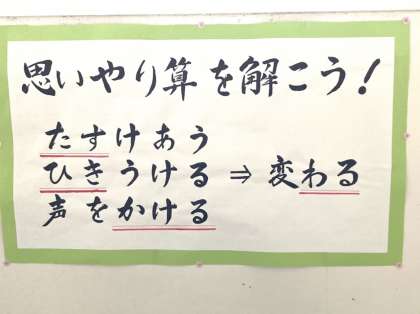 思いやり算を解こう!
たすけあう
ひきうける ⇒ 変わる
声をかける